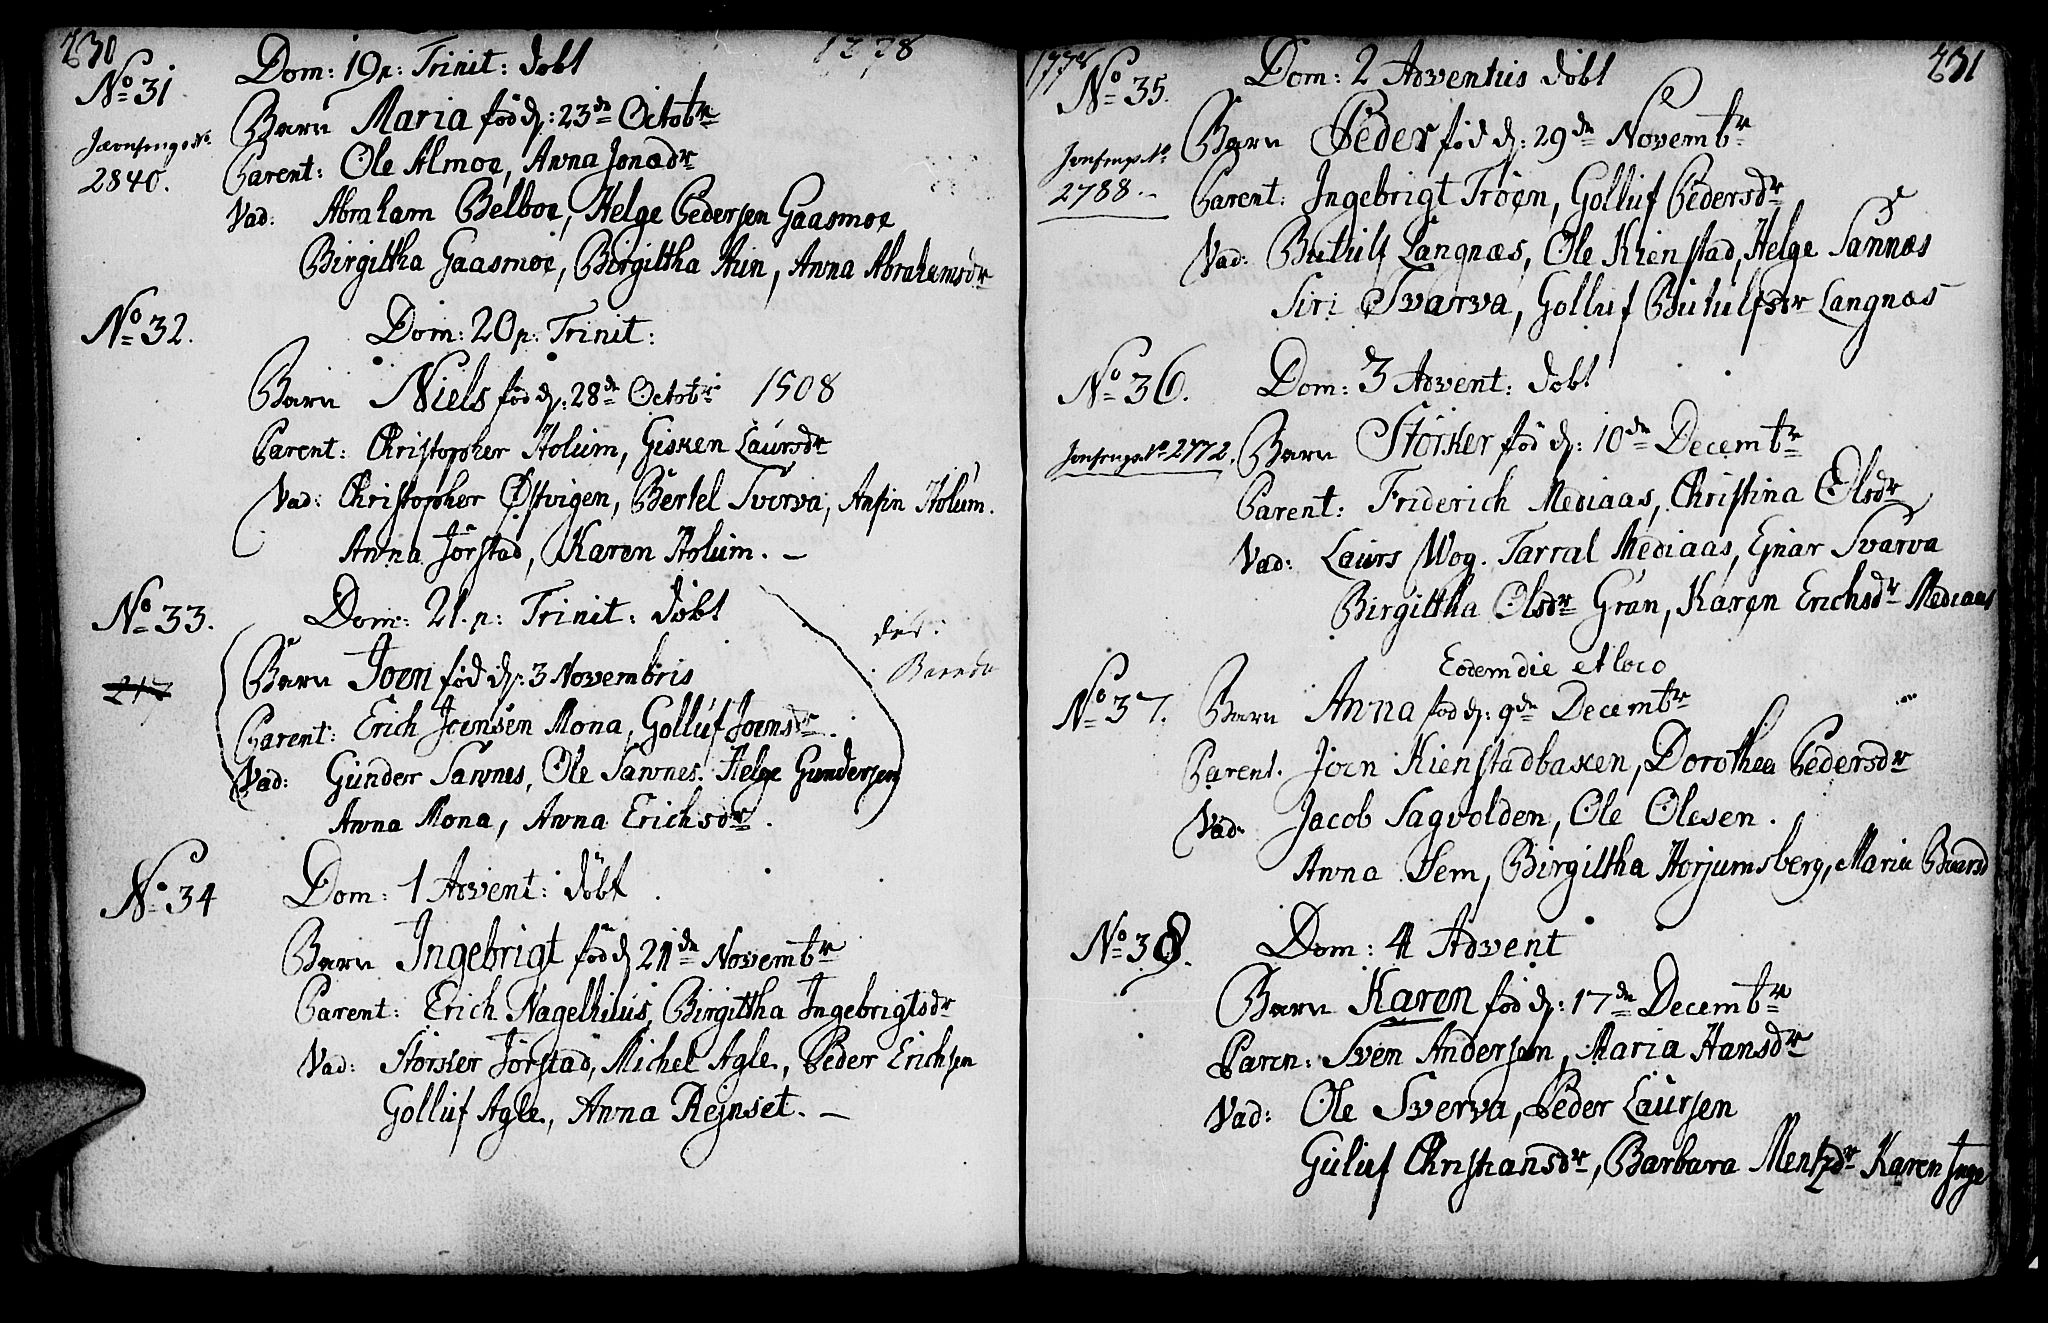 230
1778
Dom: 19 p: Trinit: döbt
No 31
Barn Maria född: 23de Octobr
2840.
Parent: Ole Almoe, Anna Jonædr
Vad: Abraham Belboe, Helge Pedersen Gaasmoe
Birgittha Gaasmoe, Birgittha Aun, Anna Abrahamsdr
No 32.
Dom: 20 p: Trinit:
Barn Niels född: 28de Octobr 1508
Parent: Christopher Holum, Gisken Laursdr
Vad: Christopher Østvigen, Bertel Svorva, Ansin Holum.
Anna Jörstad, Karen Holum. –
No 33.
Dom: 21. p: Trinit: döbt
217
Barn Joen född: 3 Novembris
Parent: Erich Joensen Mona, Golluf Joensdr.
Vad: Gunder Sannes, Ole Sannes, Helge Gundersen
Anna Mona, Anna Erichsdr.
No 34
Dom: 1 Advent: döbt
Barn Ingebrigt född 21de Novembr
Parent: Erich Nagelhuus, Birgittha Ingebrigtsdr
Vad: Störker Jörstad, Michel Agle, Peder Erichsen
Golluf Agle, Anna Rejnset. –
1778
231
No 35.
Dom: 2 Adventus döbt
Barn Peder föd d: 29de Novembr
2788. –
Parent: Ingebrigt Troen, Golluf Pedersdr
Vad: Butulf Langnæs, Ole Kienstad, Helge Sannæs
Siri Svarva, Golluf Butulfsdr Langnæs
No 36.
Dom: 3 Advent: döbt
Barn Störker föd d: 10de Decembr
2772.
Parent: Friderich Mediaas, Christina Olsdr
Vad: Laurs Wog. Tarral Mediaas, Ejnar Svarva
Birgittha Olsdr Gran, Karen Erichsdr Mediaas
Eodem die et loco
No 37.
Barn Anna föd d: 9de Decembr
Parent. Joen Kienstadbaken, Dorothea Pedersdr
Vad: Jacob Sagvolden, Ole Olesen.
Anna Sem, Birgittha Horjumsberg, Maria Baarsd
No 38.
Dom: 4 Advent
Barn Karen föd d: 17de Decembr
Paren: Sven Andersen, Maria Hansdr
Vad: Ole Sverva, Peder Laursen
Guluf Christiansdr, Barbara Mentzdr Karen Inge